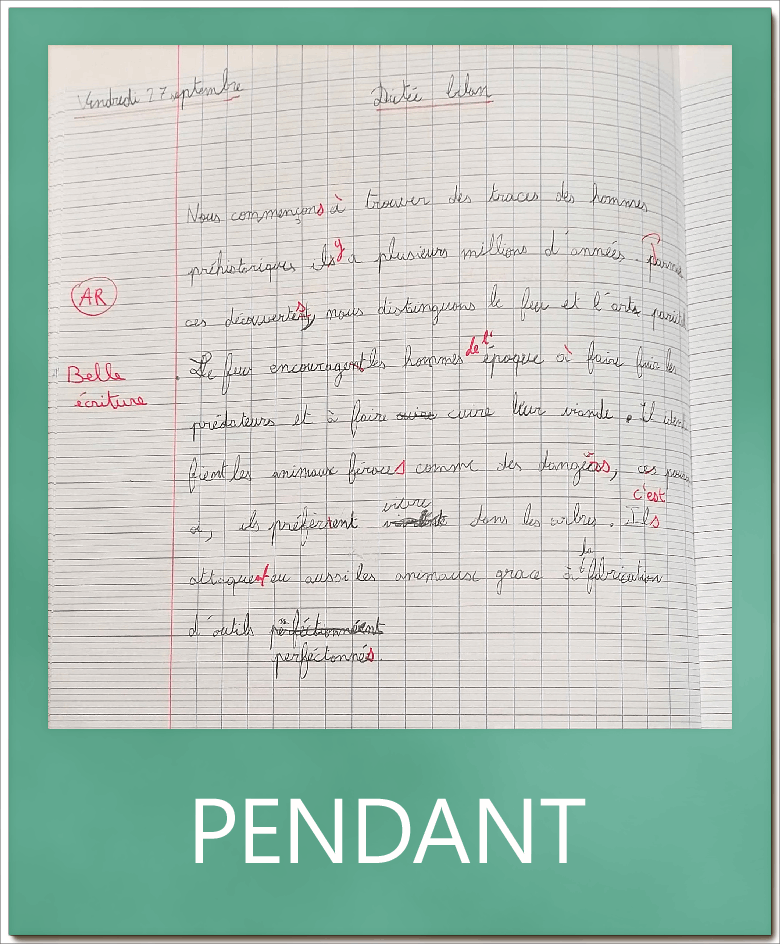 Vendredi 27 septembre
Dictée bilan
Nous commençons à trouver des traces des hommes
préhistoriques ils y a plusieurs millions d'années. Parmi
AR
ces découvertes, nous distinguons le feu et l'arts
Belle
écriture
Le feu encouragent les hommes de l'époque à faire fuir les
prédateurs et à faire cuire leur viande. Il
fient les animaux féroces comme des dangérs, ces
a, ils préfèrent vivre dans les arbres. c'est Ils
attaquent eu aussi les animaux grace à la fabrication
d'outils
perféctonnés.
PENDANT